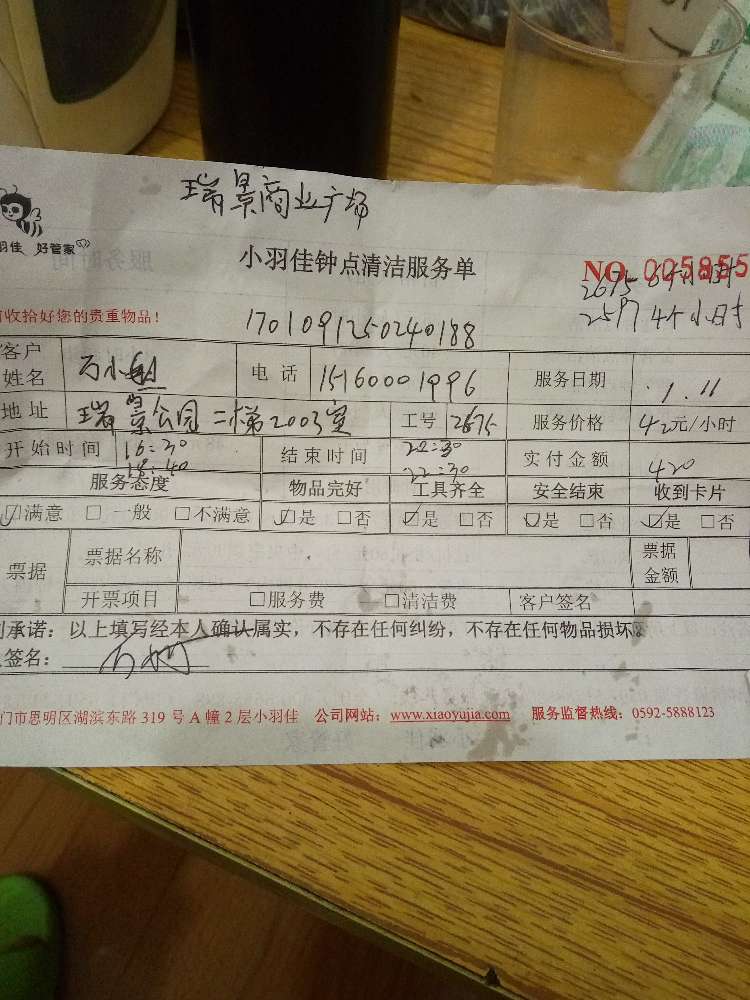 瑞景商业广场
羽佳 好管家
小羽佳钟点清洁服务单
NO 005855
2675 6个小时
259 4个小时
收拾好您的贵重物品！
1701091250240188
客户姓名 电话 15160001996 服务日期 1.11
地址 瑞景公园二梯2003室 工号 2675 服务价格 42元/小时
开始时间 16:30 18:40 结束时间 22:30 22:30 实付金额 420
服务态度 物品完好 工具齐全 安全结束 收到卡片
☑满意 □一般 □不满意 ☑是 □否 ☑是 □否 ☑是 □否 ☑是 □否
票据 票据名称 票据金额
开票项目 □服务费 □清洁费 客户签名
承诺：以上填写经本人确认属实，不存在任何纠纷，不存在任何物品损坏。
签名：
门市思明区湖滨东路 319 号 A 幢 2 层小羽佳 公司网站：www.xiaoyujia.com 服务监督热线：0592-5888123